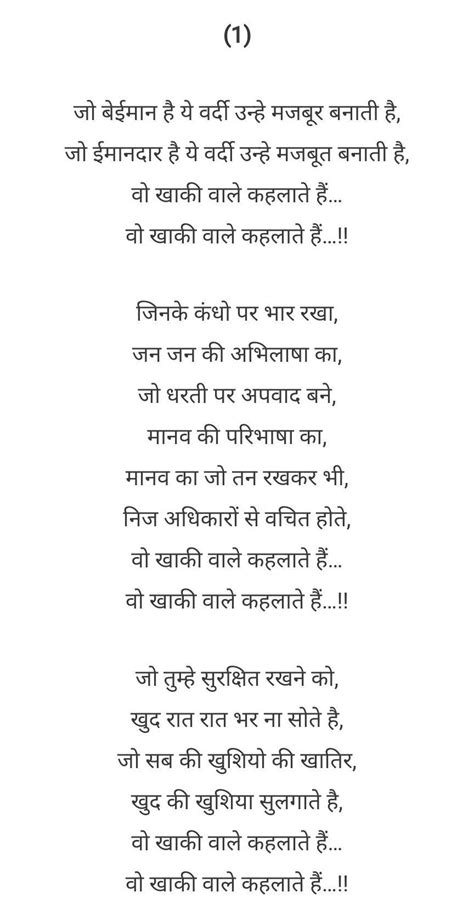 (1)
जो बेईमान है ये वर्दी उन्हे मजबूर बनाती है,
जो ईमानदार है ये वर्दी उन्हे मजबूत बनाती है,
वो खाकी वाले कहलाते हैं...
वो खाकी वाले कहलाते हैं...!!
जिनके कंधो पर भार रखा,
जन जन की अभिलाषा का,
जो धरती पर अपवाद बने,
मानव की परिभाषा का,
मानव का जो तन रखकर भी,
निज अधिकारों से वचित होते,
वो खाकी वाले कहलाते हैं...
वो खाकी वाले कहलाते हैं...!!
जो तुम्हे सुरक्षित रखने को,
खुद रात रात भर ना सोते है,
जो सब की खुशियो की खातिर,
खुद की खुशिया सुलगाते है,
वो खाकी वाले कहलाते हैं...
वो खाकी वाले कहलाते हैं...!!